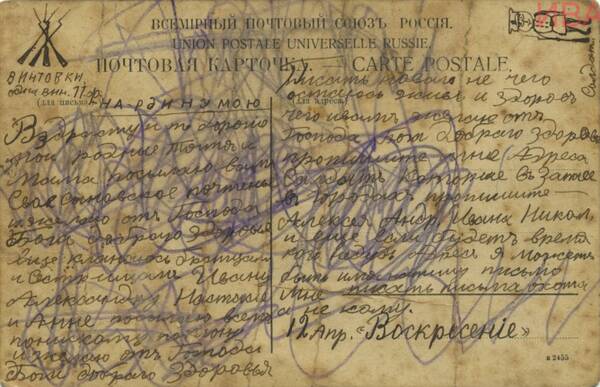 ВСЕМІРНЫЙ ПОЧТОВЫЙ СОЮЗЪ. РОССІЯ.
UNION POSTALE UNIVERSELLE RUSSIE.
ПОЧТОВАЯ КАРТОЧКА. — CARTE POSTALE.
ИВА
Солдат
ВИНТОВКИ.
(для письма)
(для адреса)
НА РОДИНУ МОЮ
Здравствуйте дорогие
мои родные тятя и
Мама посылаю вам
Свое сыновское почтение
и желаю отъ Господа
Бога доброго здоровья
еще кланяюсь братцам
и Сестрицам Ивану
Александру Настасье
и Анне посылаю всем
по низкому поклону
и желаю отъ Господа
Бога доброго Здоровья
писать новаго не чего
остаюсь живъ и здоровъ
чего и вамъ желаю отъ
Господа Бога доброго здоровья
пропишите мне Адреса
Солдатъ которые
в городах пропишите
Алексея Андр. Ивана Никол.
и еще если будетъ время
Адреса я можетъ
быть имъ напишу письмо
мне писать письма охота
а не кому.
12 Апр. «Воскресеніе»
в 2455